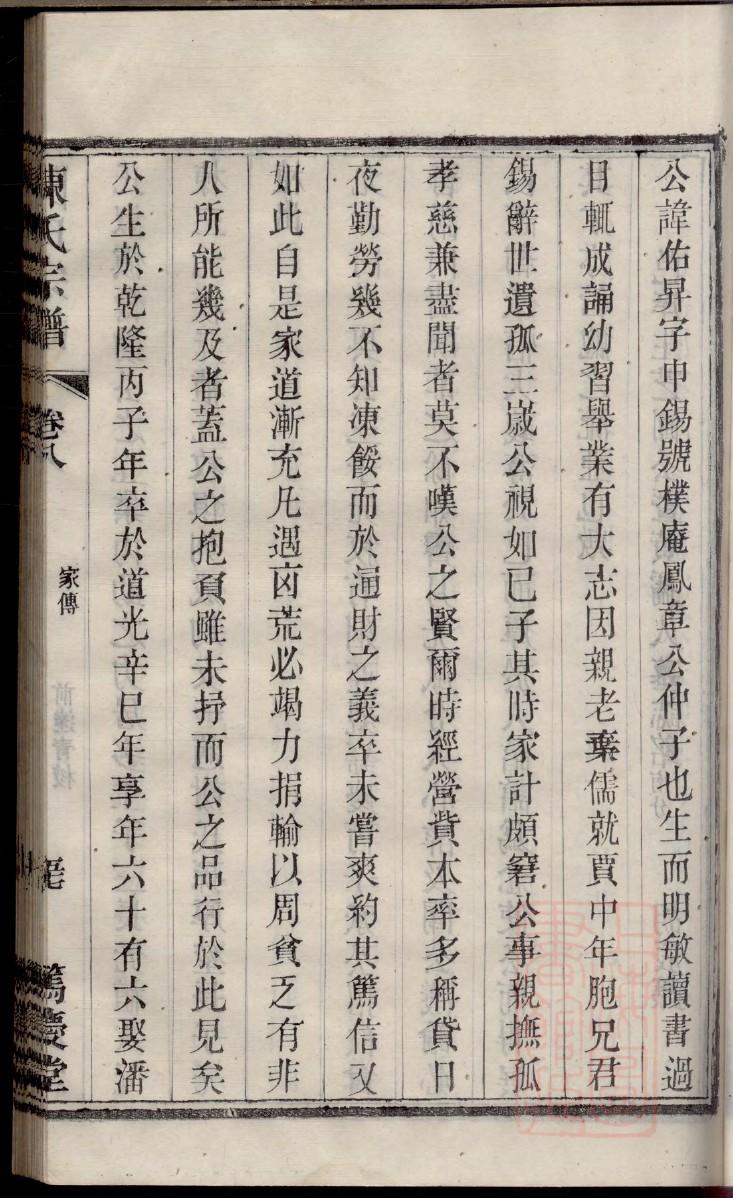 公諱佑昇字申錫號樸庵鳳章公仲子也生而明敏讀書過
目輒成誦幼習舉業有大志因親老棄儒就賈中年胞兄君
錫辭世遺孤三嵗公視如已子其時家計頗窘公事親撫孤
孝慈兼盡聞者莫不嘆公之賢爾時經營貲本率多稱貸日
夜勤勞幾不知凍餒而於通財之義卒未嘗爽約其篤信又
如此自是家道漸充凡遇囟荒必竭力捐輸以周貧乏有非
人所能幾及者蓋公之抱負雖未抒而公之品行於此見矣
公生於乾隆丙子年卒於道光辛巳年享年六十有六娶潘
陳氏宗譜
卷八
家傳
篤慶堂